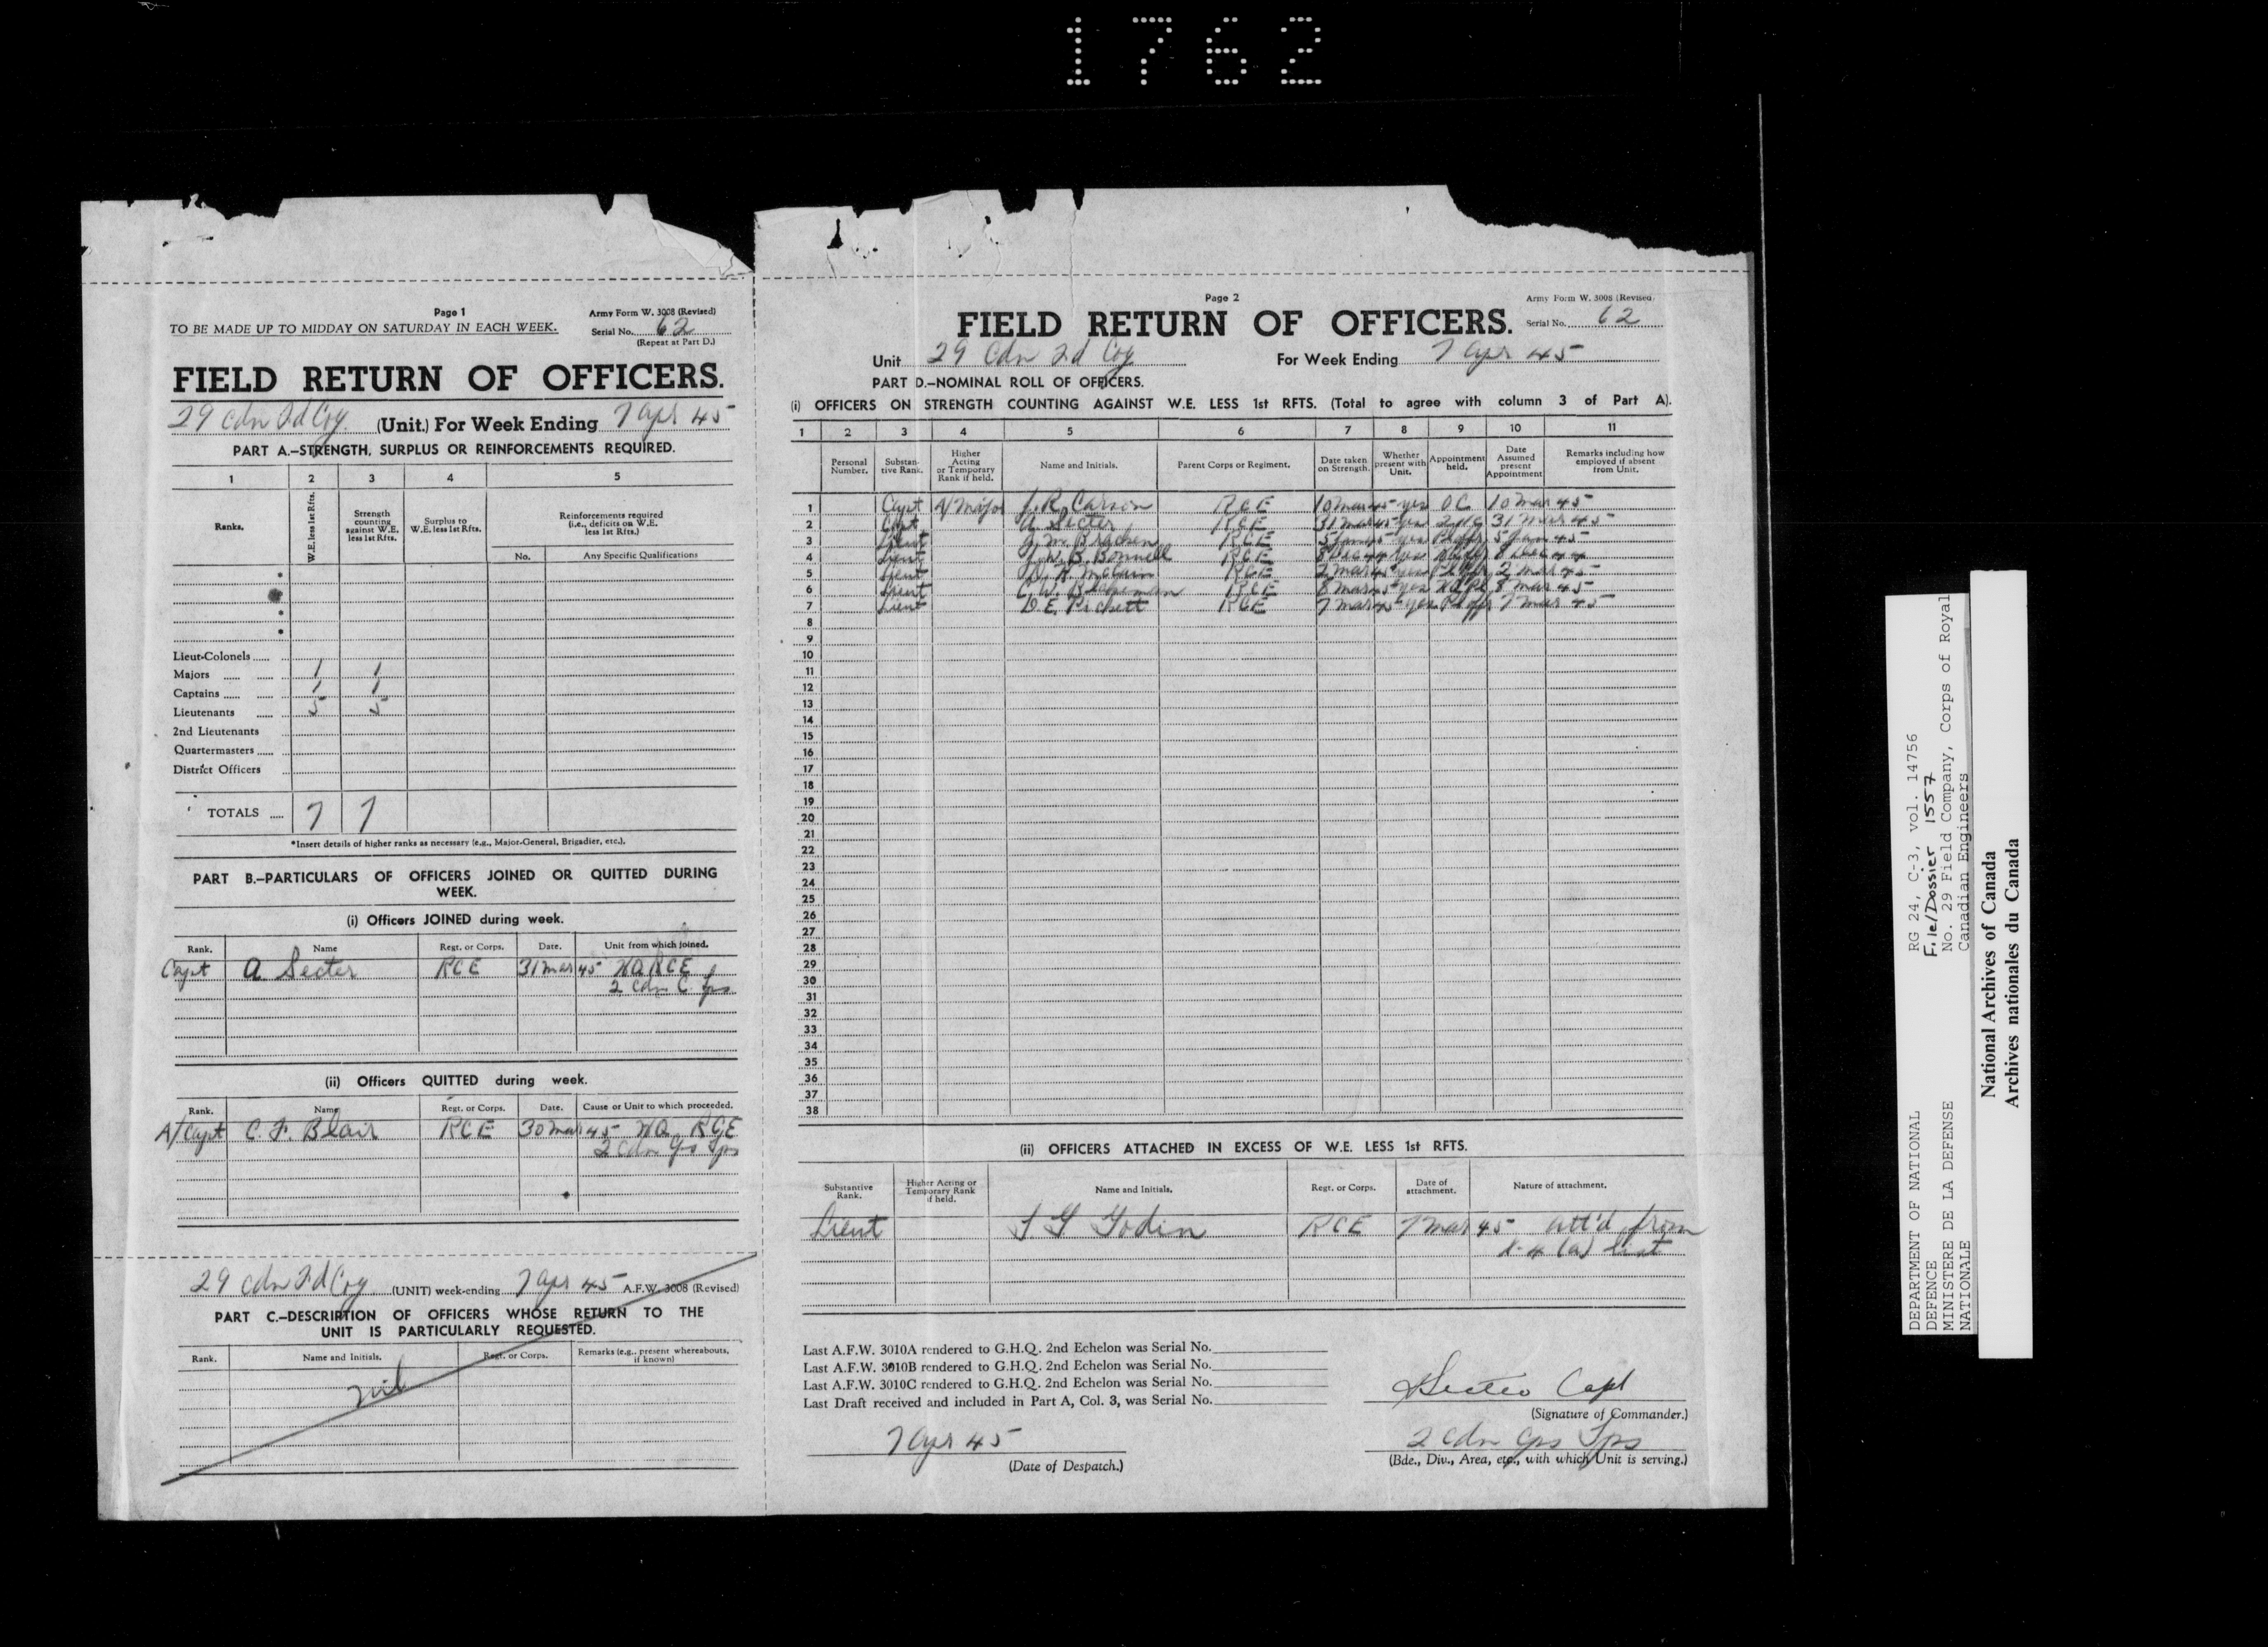 1762
Page 1
Army Form W. 3008 (Revised)
TO BE MADE UP TO MIDDAY ON SATURDAY IN EACH WEEK.
Serial No. 62
(Repeat at Part D.)
FIELD RETURN OF OFFICERS.
29 Cdn Fd Coy (Unit.) For Week Ending 7 Apr 45
PART A.–STRENGTH, SURPLUS OR REINFORCEMENTS REQUIRED.
1 2 3 4 5
Ranks.
W.E. less 1st Rfts.
Strength counting against W.E. less 1st Rfts.
Surplus to W.E. less 1st Rfts.
Reinforcements required (i.e., deficits on W.E. less 1st Rfts.)
No. Any Specific Qualifications
Lieut-Colonels
Majors 1 1
Captains 1 1
Lieutenants 5 5
2nd Lieutenants
Quartermasters
District Officers
TOTALS 7 7
*Insert details of higher ranks as necessary (e.g., Major-General, Brigadier, etc.).
PART B.–PARTICULARS OF OFFICERS JOINED OR QUITTED DURING
WEEK.
(i) Officers JOINED during week.
Rank. Name Regt. or Corps. Date. Unit from which joined.
Capt A Secter RCE 31 Mar 45 HQ RCE
2 Cdn C Tps
(ii) Officers QUITTED during week.
Rank. Name Regt. or Corps. Date. Cause or Unit to which proceeded.
A/Capt C. F. Blair RCE 30 Mar 45 HQ RCE
2 Cdn Cps Tps
29 Cdn Fd Coy (UNIT) week-ending 7 Apr 45 A.F.W. 3008 (Revised)
PART C.–DESCRIPTION OF OFFICERS WHOSE RETURN TO THE
UNIT IS PARTICULARLY REQUESTED.
Rank. Name and Initials. Regt. or Corps. Remarks (e.g., present whereabouts, if known)
nil
Page 2
Army Form W. 3008 (Revised)
FIELD RETURN OF OFFICERS.
Serial No. 62
Unit 29 Cdn Fd Coy For Week Ending 7 Apr 45
PART D.–NOMINAL ROLL OF OFFICERS.
(i) OFFICERS ON STRENGTH COUNTING AGAINST W.E. LESS 1st RFTS. (Total to agree with column 3 of Part A).
1 2 3 4 5 6 7 8 9 10 11
Personal Number.
Substantive Rank.
Higher Acting or Temporary Rank if held.
Name and Initials.
Parent Corps or Regiment.
Date taken on Strength.
Whether present with Unit.
Appointment held.
Date Assumed present Appointment
Remarks including how employed if absent from Unit.
1 Capt A/Major J. R. Carson RCE 10 Mar 45 yes OC 10 Mar 45
2 Capt A. Secter RCE 31 Mar 45 yes 2i/c 31 Mar 45
3 Lieut RCE 5 Jan 45 yes 5 Jan 45
4 Lieut J. W. B. Bonnell RCE 8 Dec 44 yes 8 Dec 44
5 Lieut RCE 2 Mar 45 yes 2 Mar 45
6 Lieut RCE 8 Mar 45 yes 8 Mar 45
7 Lieut D. E. Pickett RCE 7 Mar 45 yes Pl offr 7 Mar 45
8
9
10
11
12
13
14
15
16
17
18
19
20
21
22
23
24
25
26
27
28
29
30
31
32
33
34
35
36
37
38
(ii) OFFICERS ATTACHED IN EXCESS OF W.E. LESS 1st RFTS.
Substantive Rank.
Higher Acting or Temporary Rank if held.
Name and Initials.
Regt. or Corps.
Date of attachment.
Nature of attachment.
Lieut Godin RCE 7 Mar 45 att'd from
X-4 (a) list
Last A.F.W. 3010A rendered to G.H.Q. 2nd Echelon was Serial No.
Last A.F.W. 3010B rendered to G.H.Q. 2nd Echelon was Serial No.
Last A.F.W. 3010C rendered to G.H.Q. 2nd Echelon was Serial No.
Last Draft received and included in Part A, Col. 3, was Serial No.
Secter Capt
(Signature of Commander.)
7 Apr 45
(Date of Despatch.)
2 Cdn Cps Tps
(Bde., Div., Area, etc., with which Unit is serving.)
DEPARTMENT OF NATIONAL
DEFENCE
MINISTERE DE LA DEFENSE
NATIONALE
RG 24, C-3, vol. 14756
File/Dossier 1557
No. 29 Field Company, Corps of Royal
Canadian Engineers
National Archives of Canada
Archives nationales du Canada